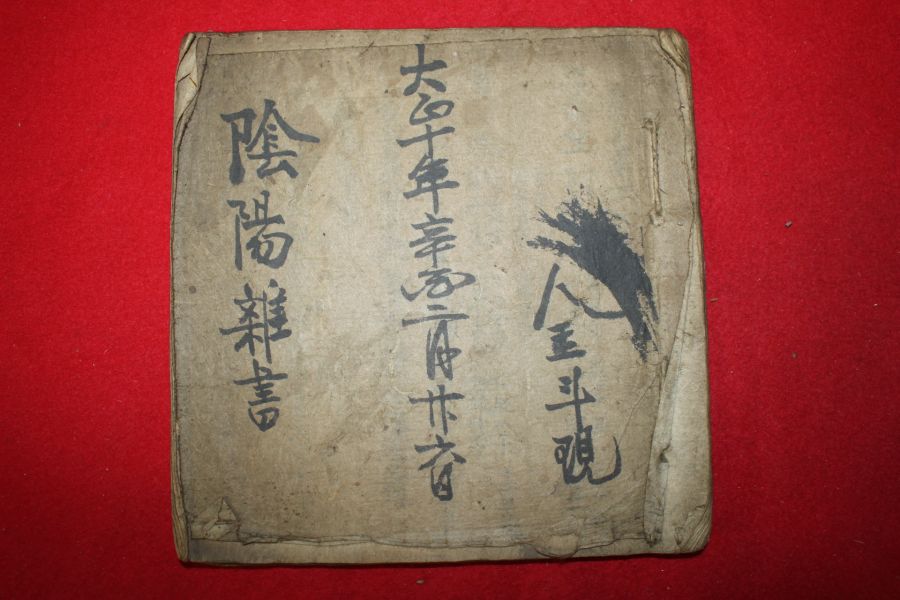 全斗現
大正十年辛酉二月廿六日
陰陽雜書